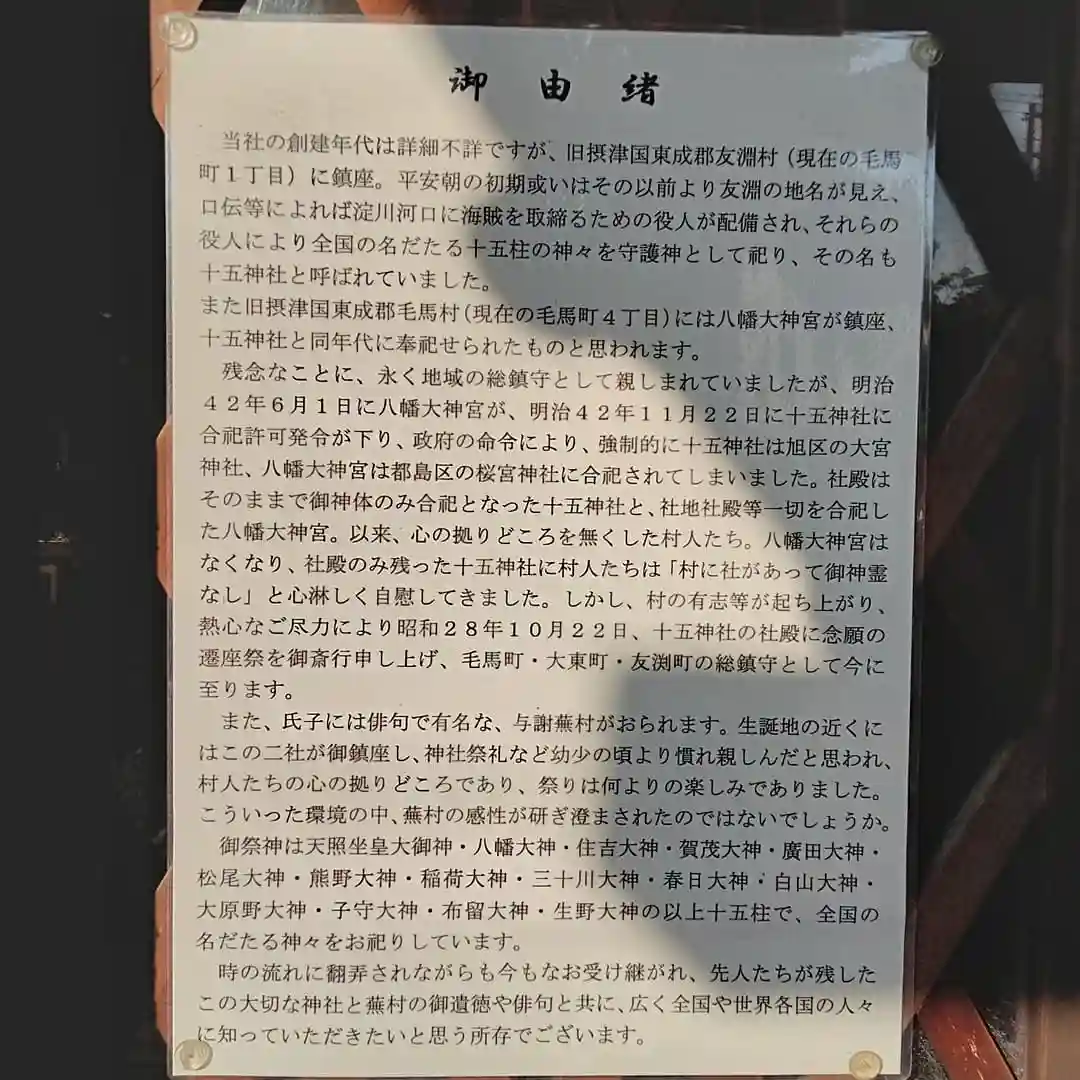 御由緒
当社の創建年代は詳細不詳ですが、旧摂津国東成郡友淵村（現在の毛馬
町１丁目）に鎮座。平安朝の初期或いはその以前より友淵の地名が見え、
口伝等によれば淀川河口に海賊を取締るための役人が配備され、それらの
役人により全国の名だたる十五柱の神々を守護神として祀り、その名も
十五神社と呼ばれていました。
また旧摂津国東成郡毛馬村（現在の毛馬町４丁目）には八幡大神宮が鎮座、
十五神社と同年代に奉祀せられたものと思われます。
残念なことに、永く地域の総鎮守として親しまれていましたが、明治
４２年６月１日に八幡大神宮が、明治４２年１１月２２日に十五神社に
合祀許可発令が下り、政府の命令により、強制的に十五神社は旭区の大宮
神社、八幡大神宮は都島区の桜宮神社に合祀されてしまいました。社殿は
そのままで御神体のみ合祀となった十五神社と、社地社殿等一切を合祀し
た八幡大神宮。以来、心の拠りどころを無くした村人たち。八幡大神宮は
なくなり、社殿のみ残った十五神社に村人たちは「村に社があって御神霊
なし」と心淋しく自慰してきました。しかし、村の有志等が起ち上がり、
熱心なご尽力により昭和２８年１０月２２日、十五神社の社殿に念願の
遷座祭を御斎行申し上げ、毛馬町・大東町・友渕町の総鎮守として今に
至ります。
また、氏子には俳句で有名な、与謝蕪村がおられます。生誕地の近くに
はこの二社が御鎮座し、神社祭礼など幼少の頃より慣れ親しんだと思われ、
村人たちの心の拠りどころであり、祭りは何よりの楽しみでありました。
こういった環境の中、蕪村の感性が研ぎ澄まされたのではないでしょうか。
御祭神は天照坐皇大御神・八幡大神・住吉大神・賀茂大神・廣田大神・
松尾大神・熊野大神・稲荷大神・三十川大神・春日大神・白山大神・
大原野大神・子守大神・布留大神・生野大神の以上十五柱で、全国の
名だたる神々をお祀りしています。
時の流れに翻弄されながらも今もなお受け継がれ、先人たちが残した
この大切な神社と蕪村の御遺徳や俳句と共に、広く全国や世界各国の人々
に知っていただきたいと思う所存でございます。